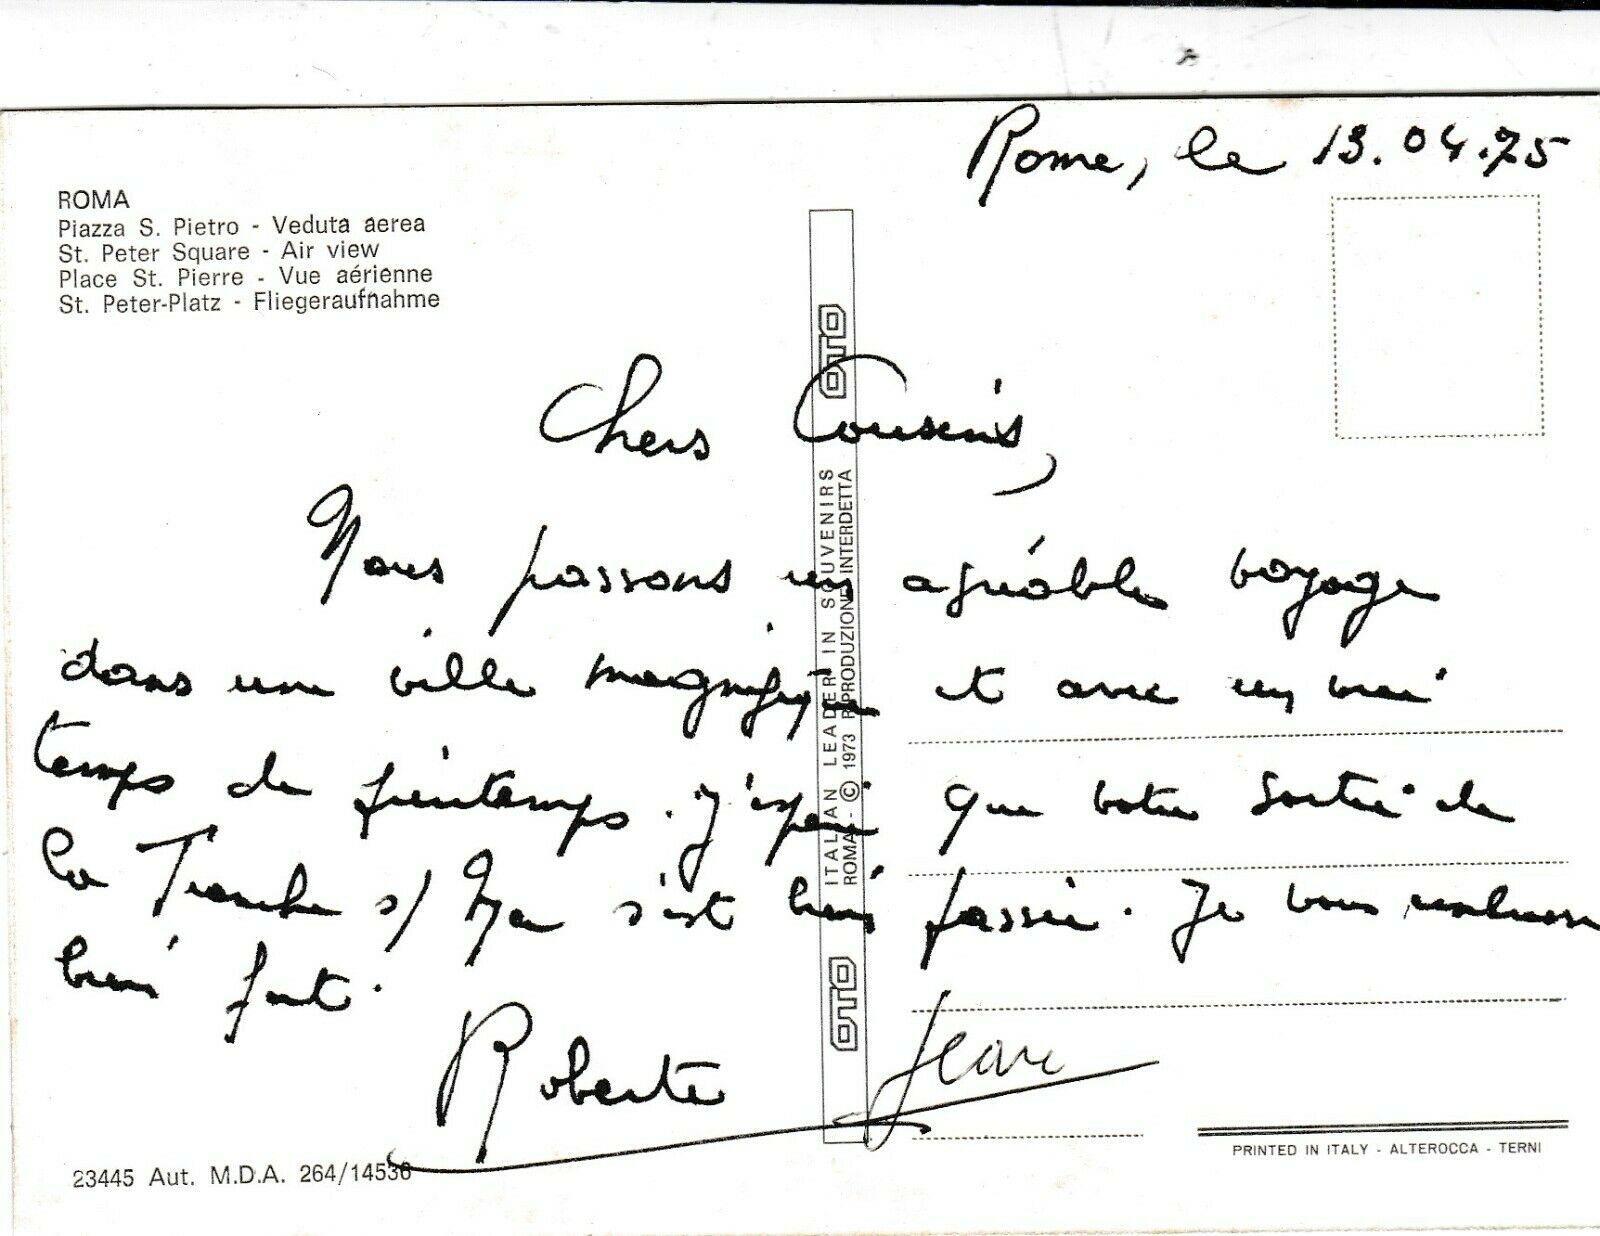 Rome, le 13.04.75
ROMA
Piazza S. Pietro - Veduta aerea
St. Peter Square - Air view
Place St. Pierre - Vue aérienne
St. Peter-Platz - Fliegeraufnahme
Chers Cousins,
Nous passons un agréable voyage
dans une ville magnifique et avec un vrai
temps de printemps. J'espère que votre sortie de
la Tranche s/ Mer s'est bien passée. Je vous embrasse
bien fort.
Roberte Jean
OTO ITALIAN LEADER IN SOUVENIRS OTO
ROMA - © 1973 RIPRODUZIONE INTERDETTA
23445 Aut. M.D.A. 264/14536
PRINTED IN ITALY - ALTEROCCA - TERNI